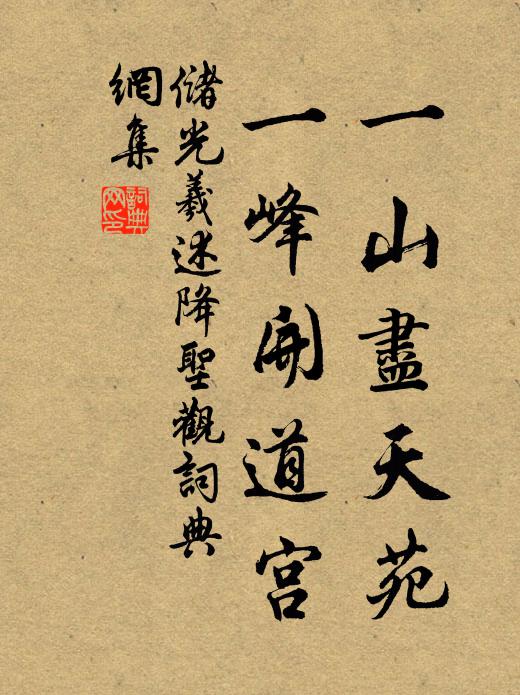 一山盡天苑
一峰開道宫
儲光羲述降聖觀詞典
網集
詞典
网印